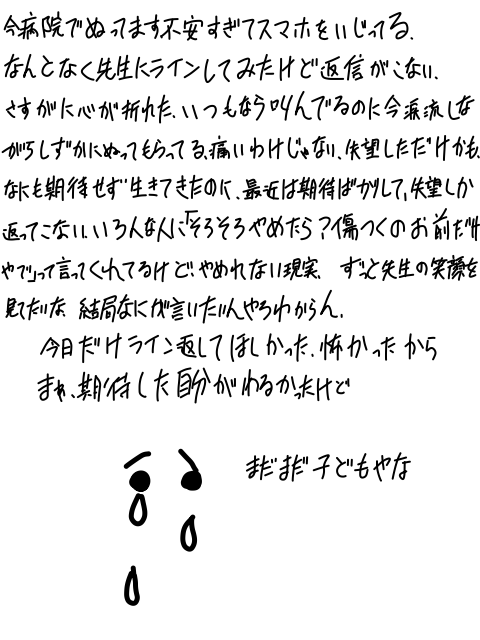 今病院でぬってます不安すぎてスマホをいじってる.
なんとなく先生にラインしてみたけど返信がこない.
さすがに心が折れた.いつもなら叫んでるのに今涙流しな
がらしずかにぬってもらってる、痛いわけじゃない、失望しただけかも、
なにも期待せず生きてきたのに、最近は期待ばかりして、失望しか
返ってこない、いろんな人に「そろそろやめたら?傷つくのお前だけ
やで」って言ってくれてるけど、やめれない現実. ずっと先生の笑顔を
見てたいな 結局なにが言いたいんやろわからん.
今日だけライン返してほしかった.怖かったから
まぁ、期待した自分がわるかったけど
まだまだ子どもやな